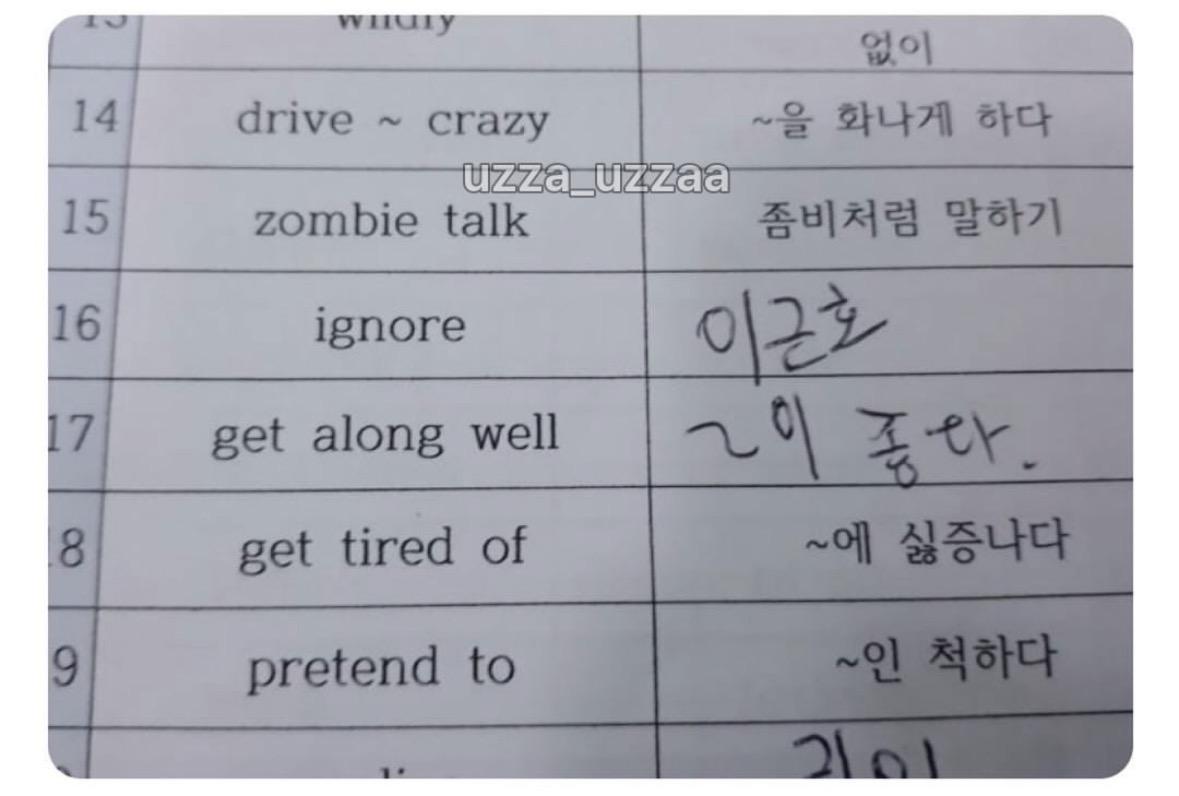 13 wildly 없이
14 drive ~ crazy ~을 화나게 하다
uzza_uzzaa
15 zombie talk 좀비처럼 말하기
16 ignore 이근호
17 get along well ~이 좋다.
8 get tired of ~에 싫증나다
9 pretend to ~인 척하다